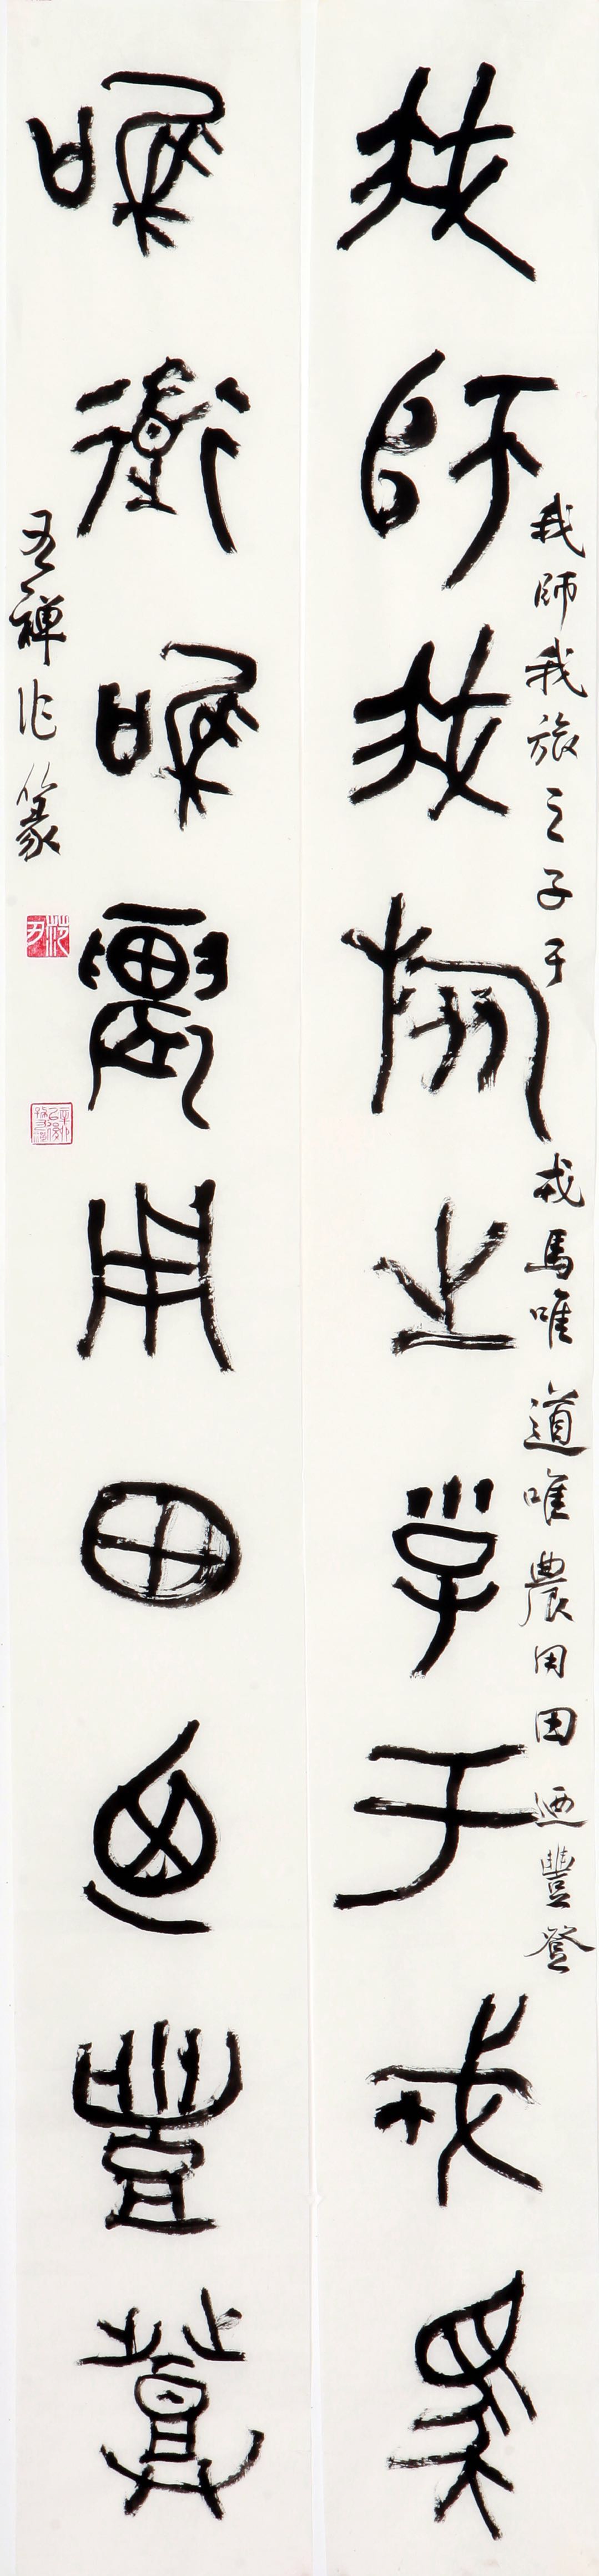 我師我旅之子于戎馬
唯道唯農用田迺豐登
我師我旅之子于戎馬唯道唯農用田迺豐登
吾禪作篆